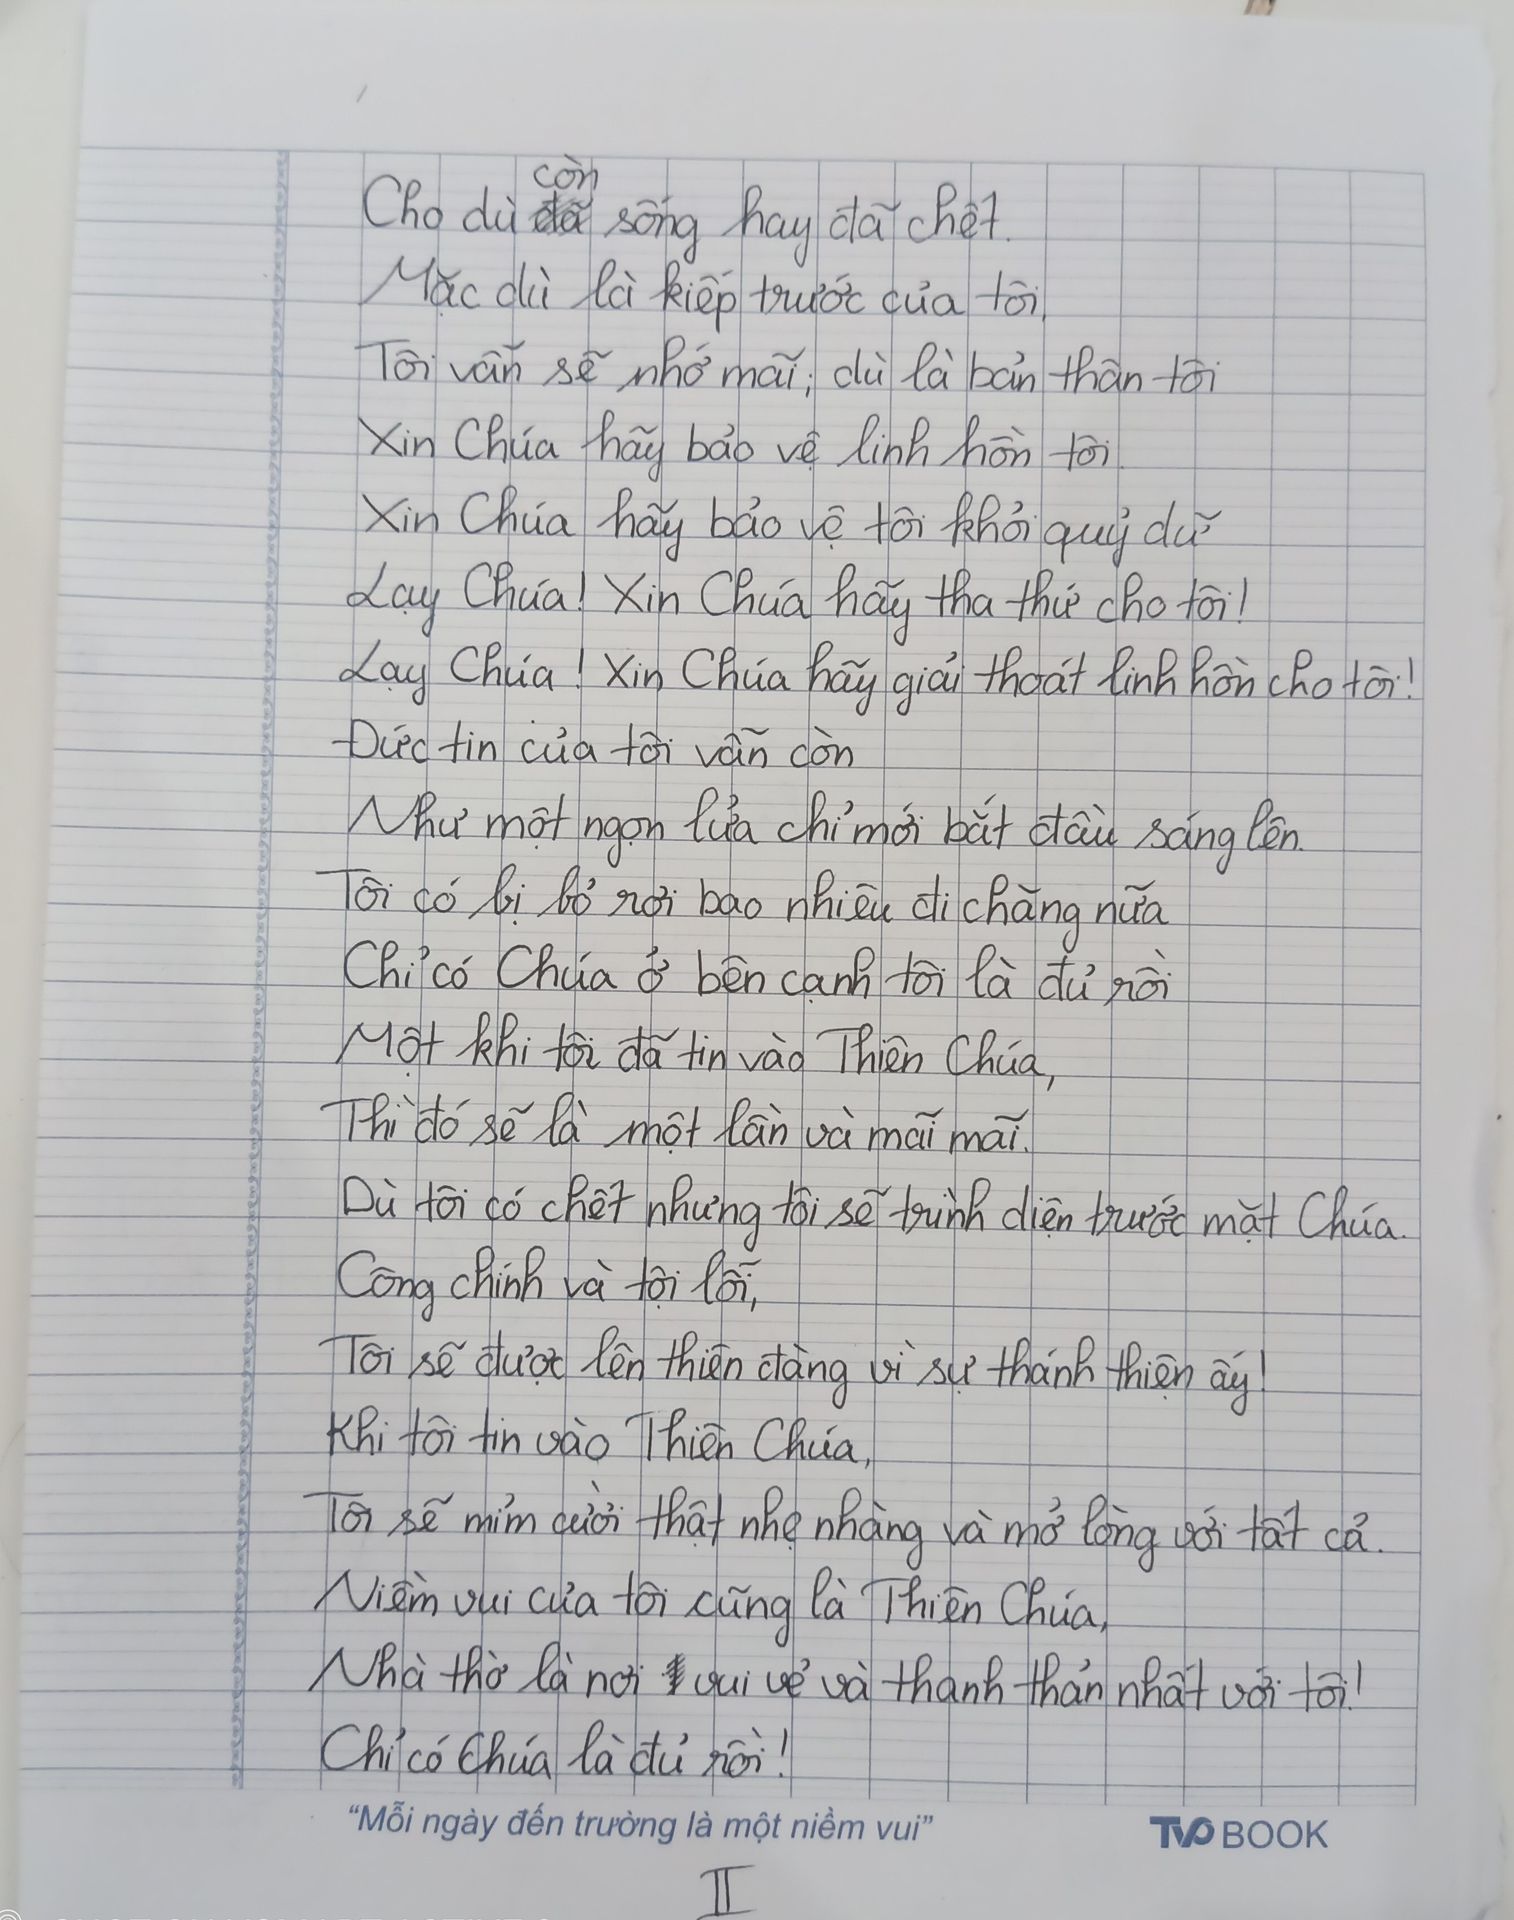 Cho dù còn sống hay đã chết.
Mặc dù là kiếp trước của tôi,
Tôi vẫn sẽ nhớ mãi, dù là bản thân tôi
Xin Chúa hãy bảo vệ linh hồn tôi.
Xin Chúa hãy bảo vệ tôi khỏi quỷ dữ
Lạy Chúa! Xin Chúa hãy tha thứ cho tôi!
Lạy Chúa! Xin Chúa hãy giải thoát linh hồn cho tôi!
Đức tin của tôi vẫn còn
Như một ngọn lửa chỉ mới bắt đầu sáng lên.
Tôi có bị bỏ rơi bao nhiêu đi chăng nữa
Chỉ có Chúa ở bên cạnh tôi là đủ rồi
Một khi tôi đã tin vào Thiên Chúa,
Thì đó sẽ là một lần và mãi mãi.
Dù tôi có chết nhưng tôi sẽ trình diện trước mặt Chúa.
Công chính và tội lỗi,
Tôi sẽ được lên thiên đàng vì sự thánh thiện ấy!
Khi tôi tin vào Thiên Chúa,
Tôi sẽ mỉm cười thật nhẹ nhàng và mở lòng với tất cả.
Niềm vui của tôi cũng là Thiên Chúa,
Nhà thờ là nơi vui vẻ và thanh thản nhất với tôi!
Chỉ có Chúa là đủ rồi!
"Mỗi ngày đến trường là một niềm vui" TVO BOOK
II